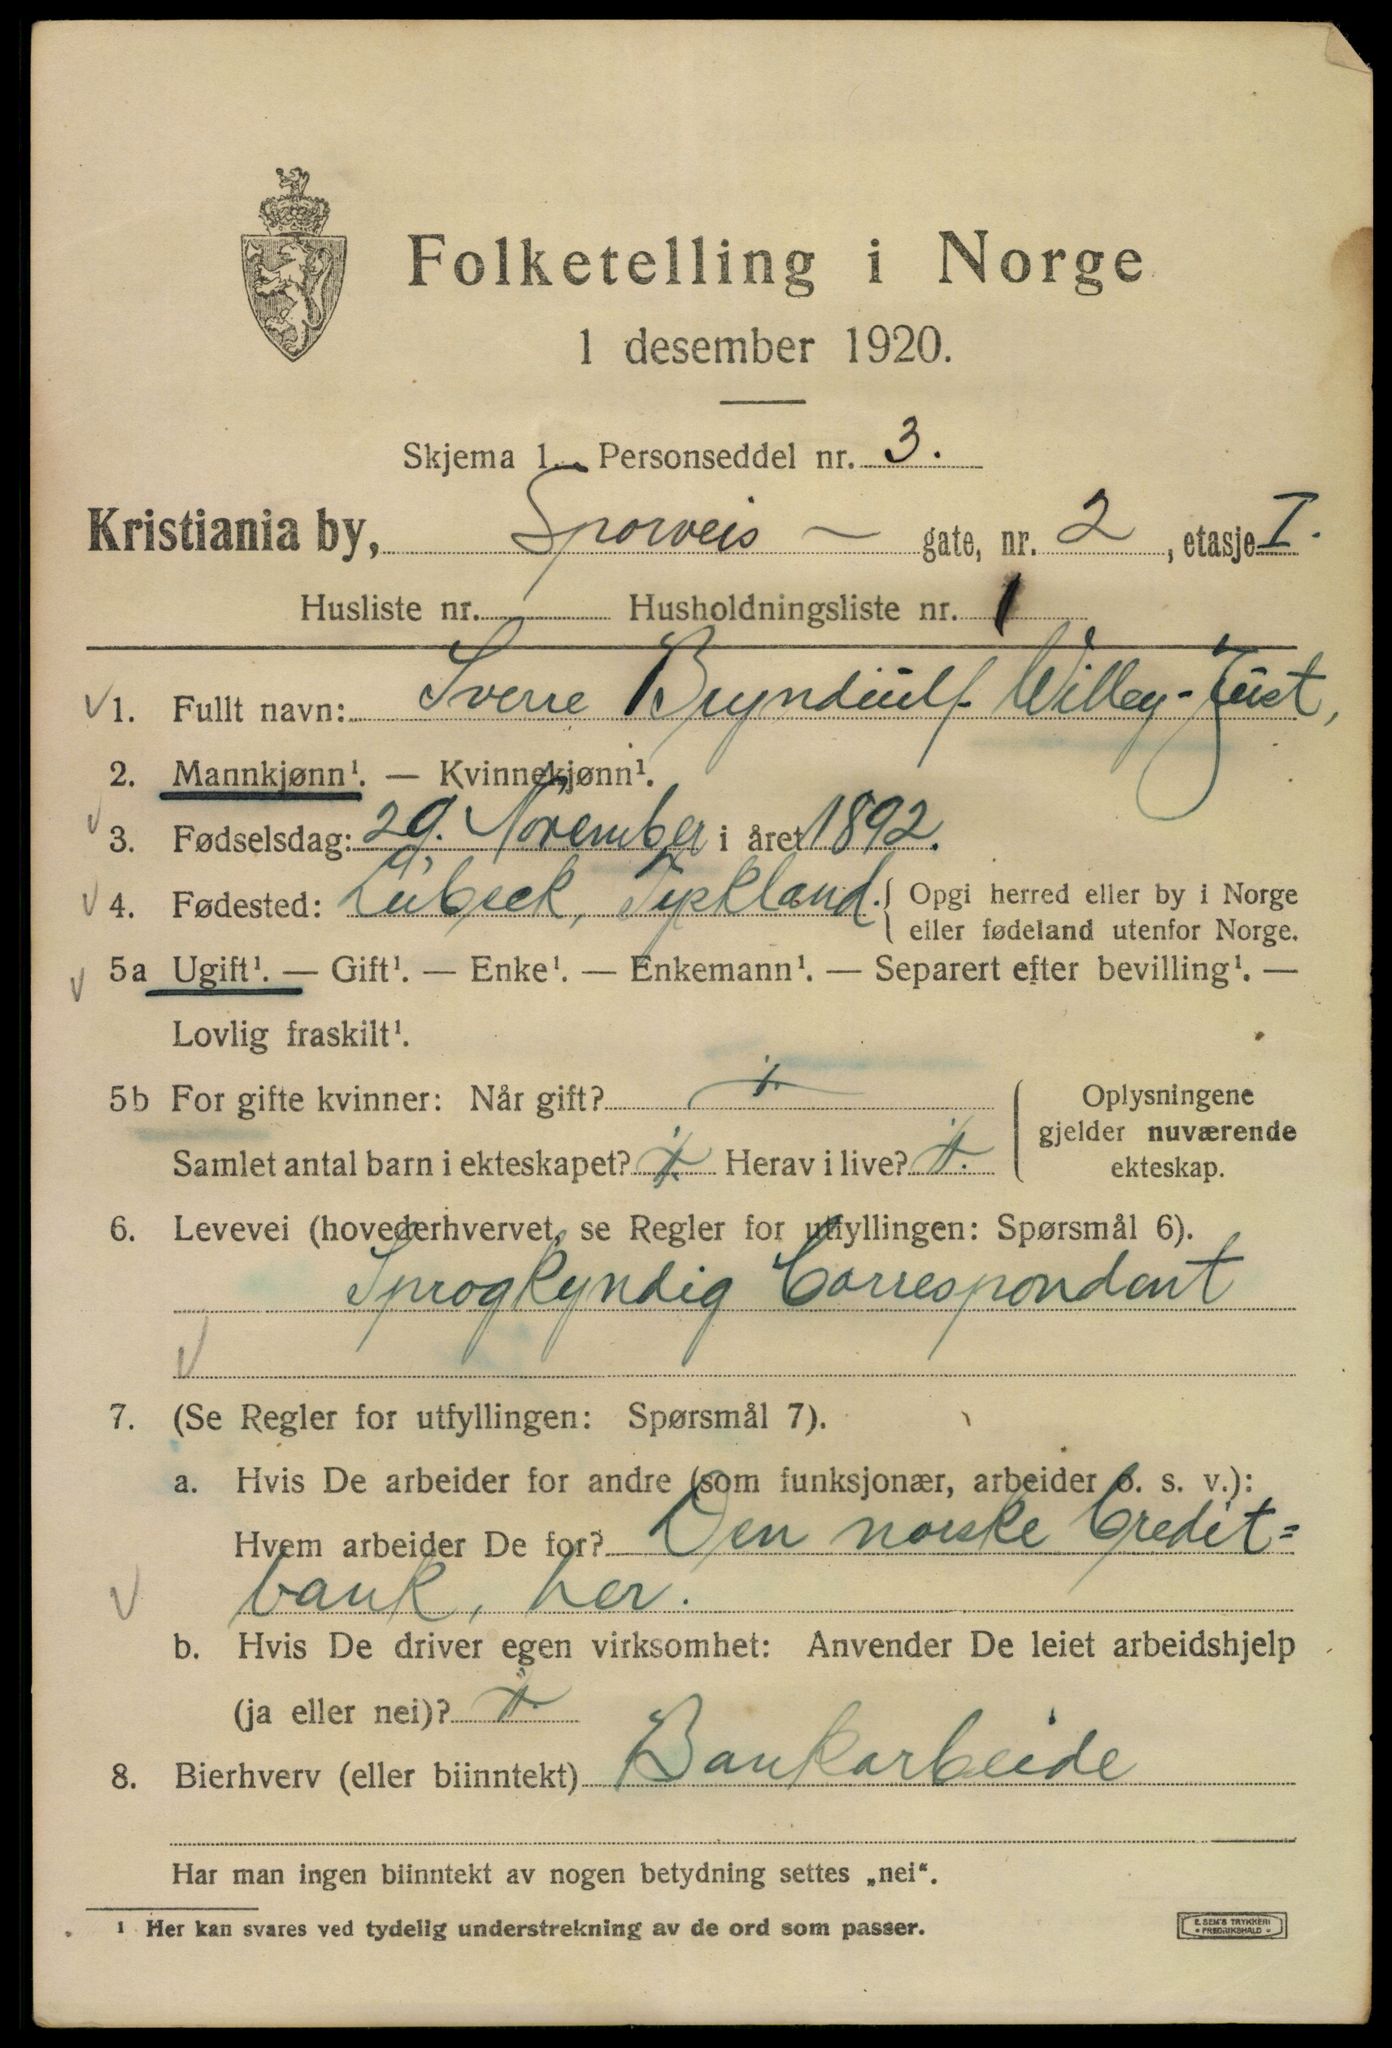 Folketelling i Norge
1 desember 1920.
Skjema 1. Personseddel nr. 3.
Kristiania by, Sporveis - gate, nr. 2, etasje I.
Husliste nr. Husholdningsliste nr. 1
1. Fullt navn: Sverre Bryndiulf Willey-Just,
2. Mannkjønn¹. — Kvinnekjønn¹.
3. Fødselsdag: 29. November i året 1892.
4. Fødested: Lübeck, Tyskland. { Opgi herred eller by i Norge
eller fødeland utenfor Norge.
5a Ugift¹. — Gift¹. — Enke¹. — Enkemann¹. — Separert efter bevilling¹. —
Lovlig fraskilt¹.
5b For gifte kvinner: Når gift?
Samlet antal barn i ekteskapet? Herav i live?
Oplysningene
gjelder nuværende
ekteskap.
6. Levevei (hovederhvervet, se Regler for utfyllingen: Spørsmål 6).
Sprogkyndig Correspondent
7. (Se Regler for utfyllingen: Spørsmål 7).
a. Hvis De arbeider for andre (som funksjonær, arbeider o. s. v.):
Hvem arbeider De for? Den norske Credit=
bank, her.
b. Hvis De driver egen virksomhet: Anvender De leiet arbeidshjelp
(ja eller nei)?
8. Bierhverv (eller biinntekt) Bankarbeide
Har man ingen biinntekt av nogen betydning settes „nei“.
¹ Her kan svares ved tydelig understrekning av de ord som passer.
E. SEM'S TRYKKERI
* FREDRIKSHALD *